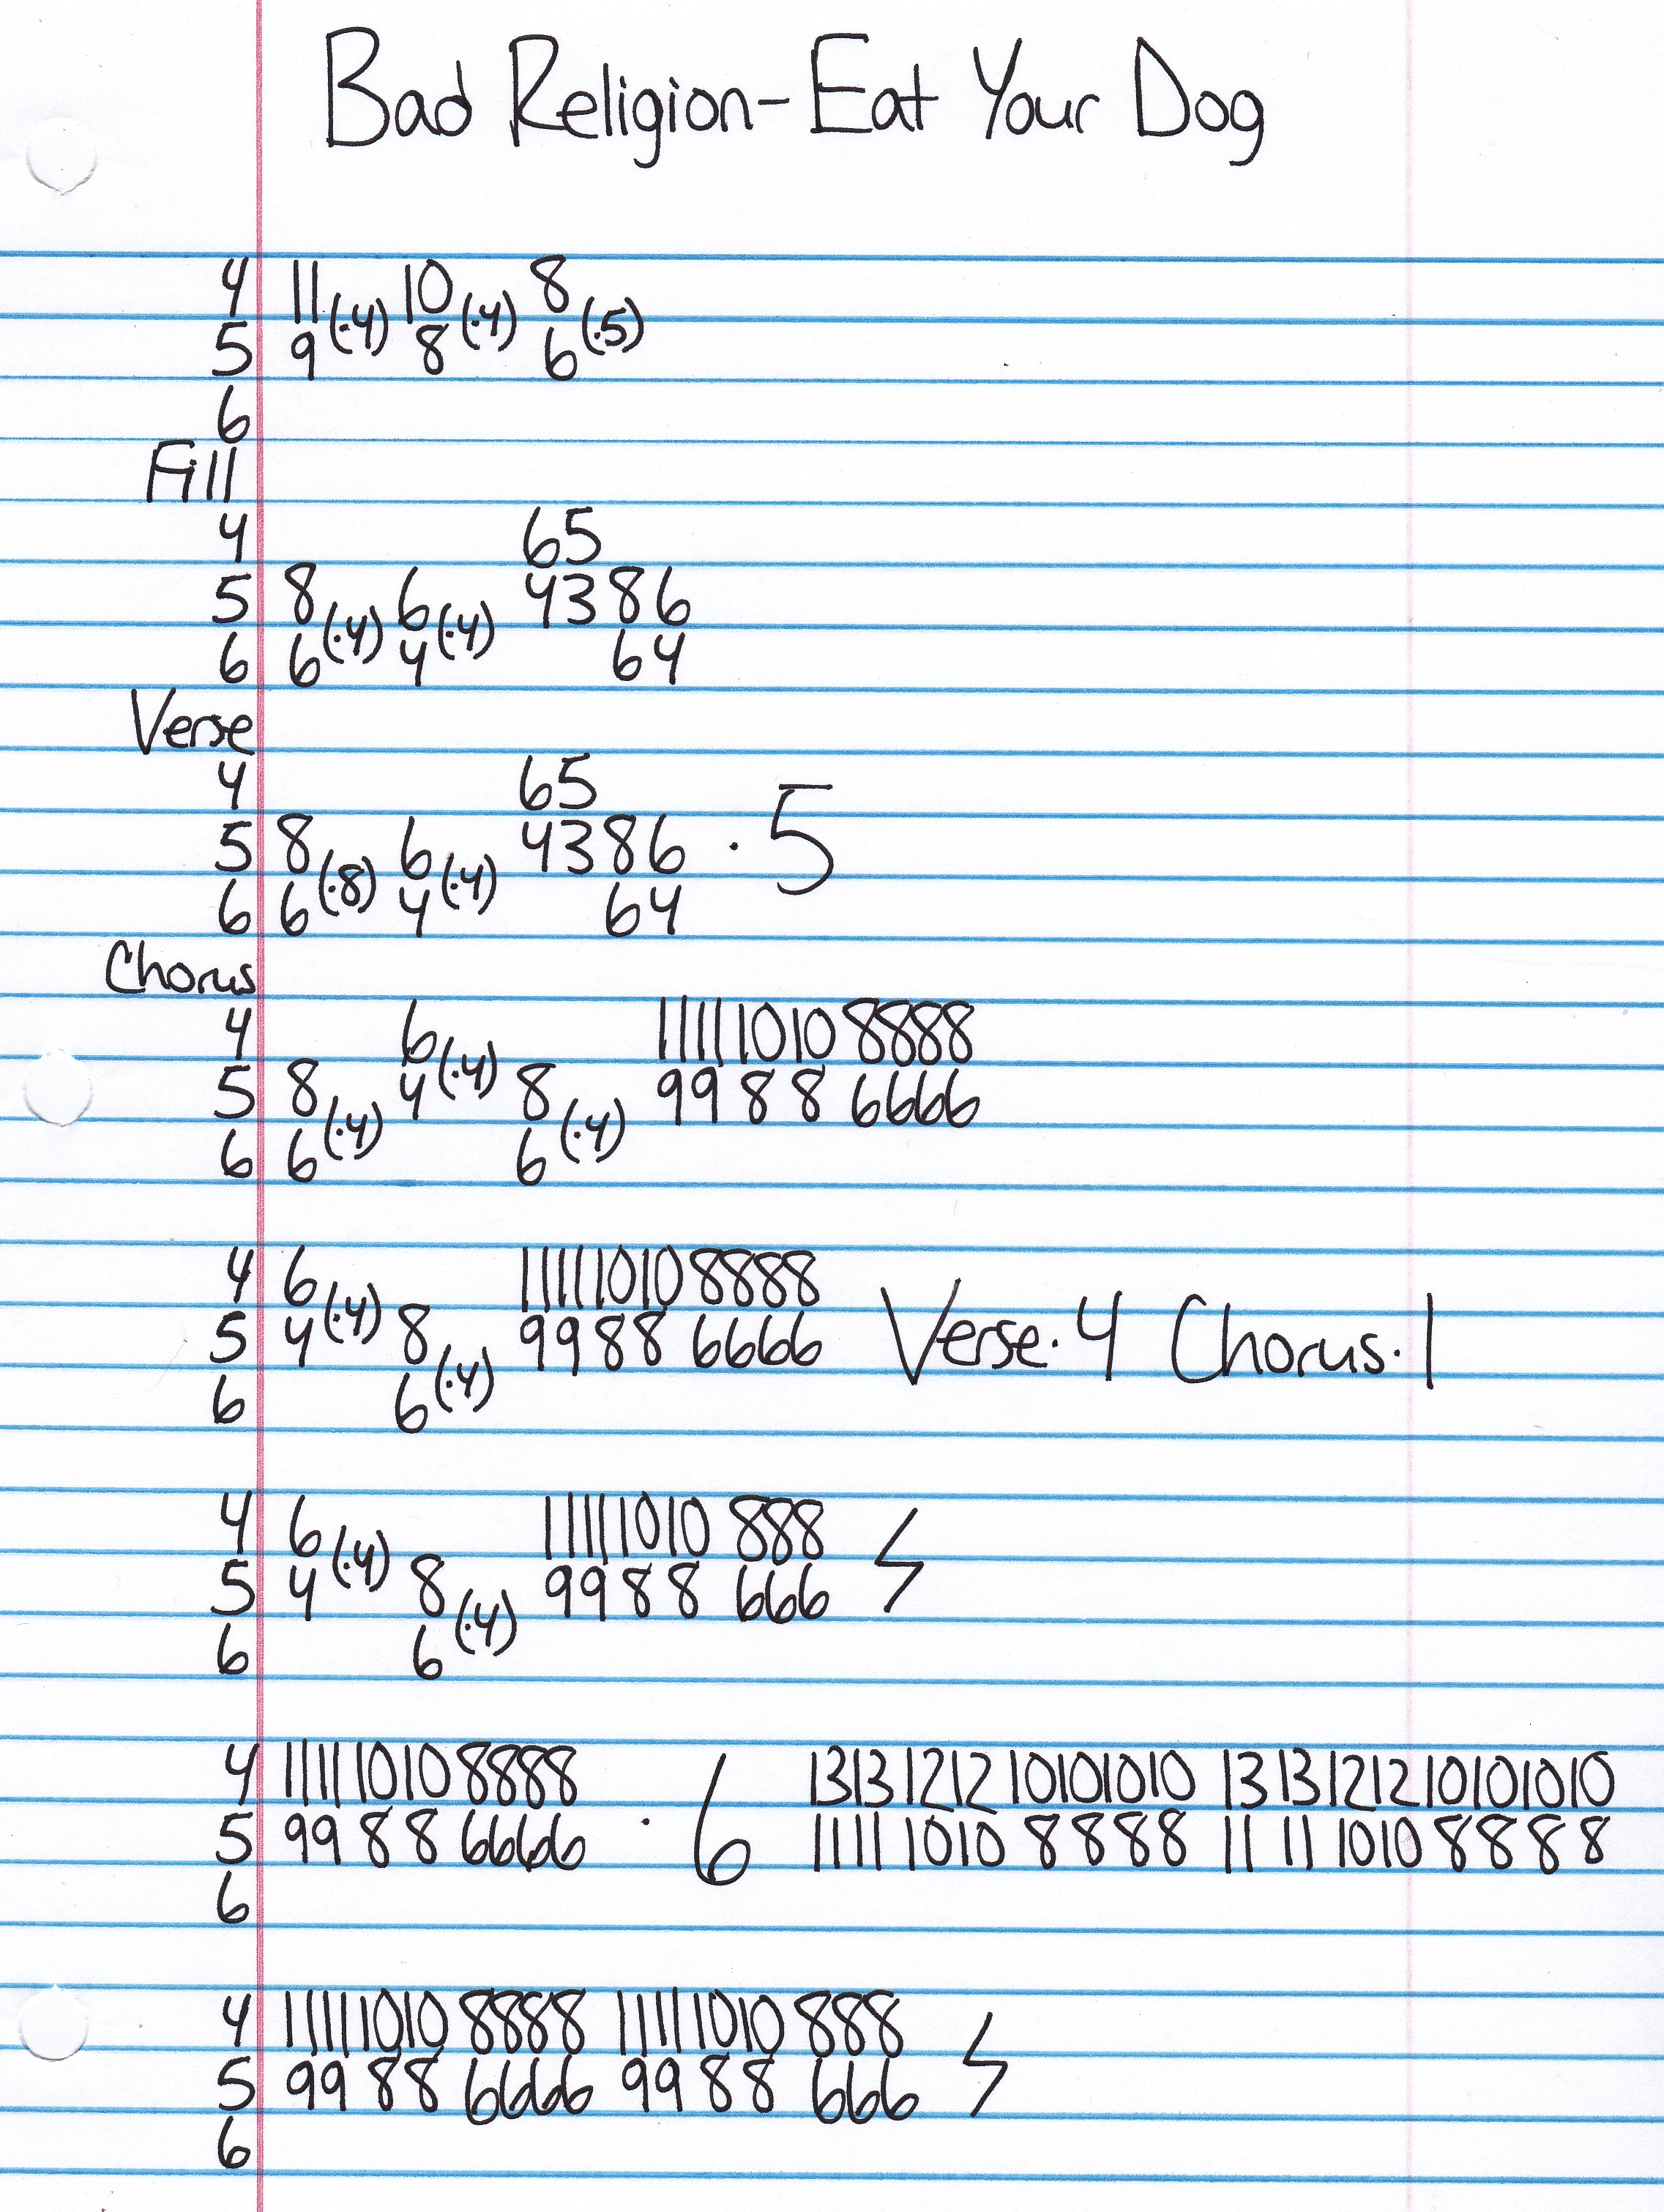 Bad Religion - Eat Your Dog
4 11 (·4) 10 (·4) 8 (·5)
5 9 8 6
6
Fill
4 65
5 8 (·4) 6 (·4) 43 86
6 6 4 64
Verse
4 65
5 8 (·8) 6 (·4) 43 86 · 5
6 6 4 64
Chorus
4 6 (·4) 11 11 10 10 8888
5 8 (·4) 4 8 (·4) 99 8 8 6666
6 6 6
4 6 (·4) 11 11 10 10 8888
5 4 8 (·4) 99 88 6666 Verse · 4 Chorus · 1
6 6
4 6 (·4) 11 11 10 10 888
5 4 8 (·4) 99 8 8 666
6 6
4 11 11 10 10 8888 · 6 13 13 12 12 10 10 10 10 13 13 12 12 10 10 10 10
5 99 8 8 6666 11 11 10 10 8 8 8 8 11 11 10 10 8 8 8 8
6
4 11 11 10 10 8888 11 11 10 10 888
5 99 88 6666 99 88 666
6